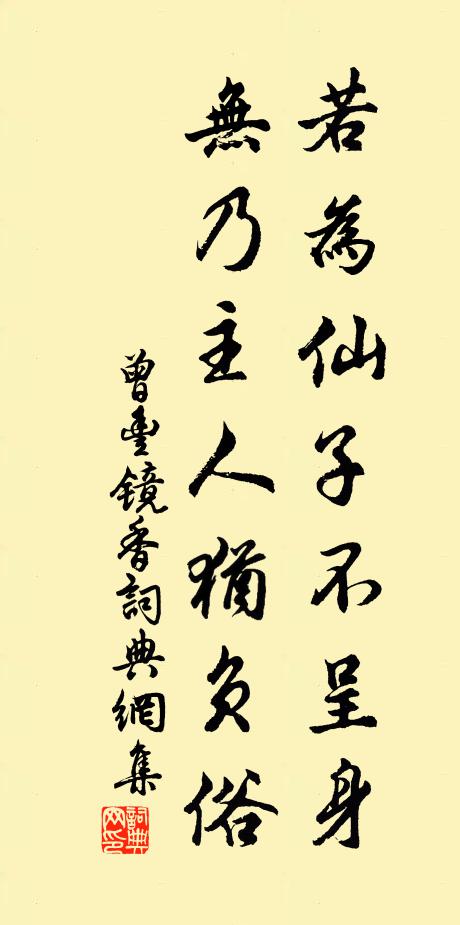 若為仙子不呈身
無乃主人猶負俗
曾豐鏡香詞典網集
詞典网印